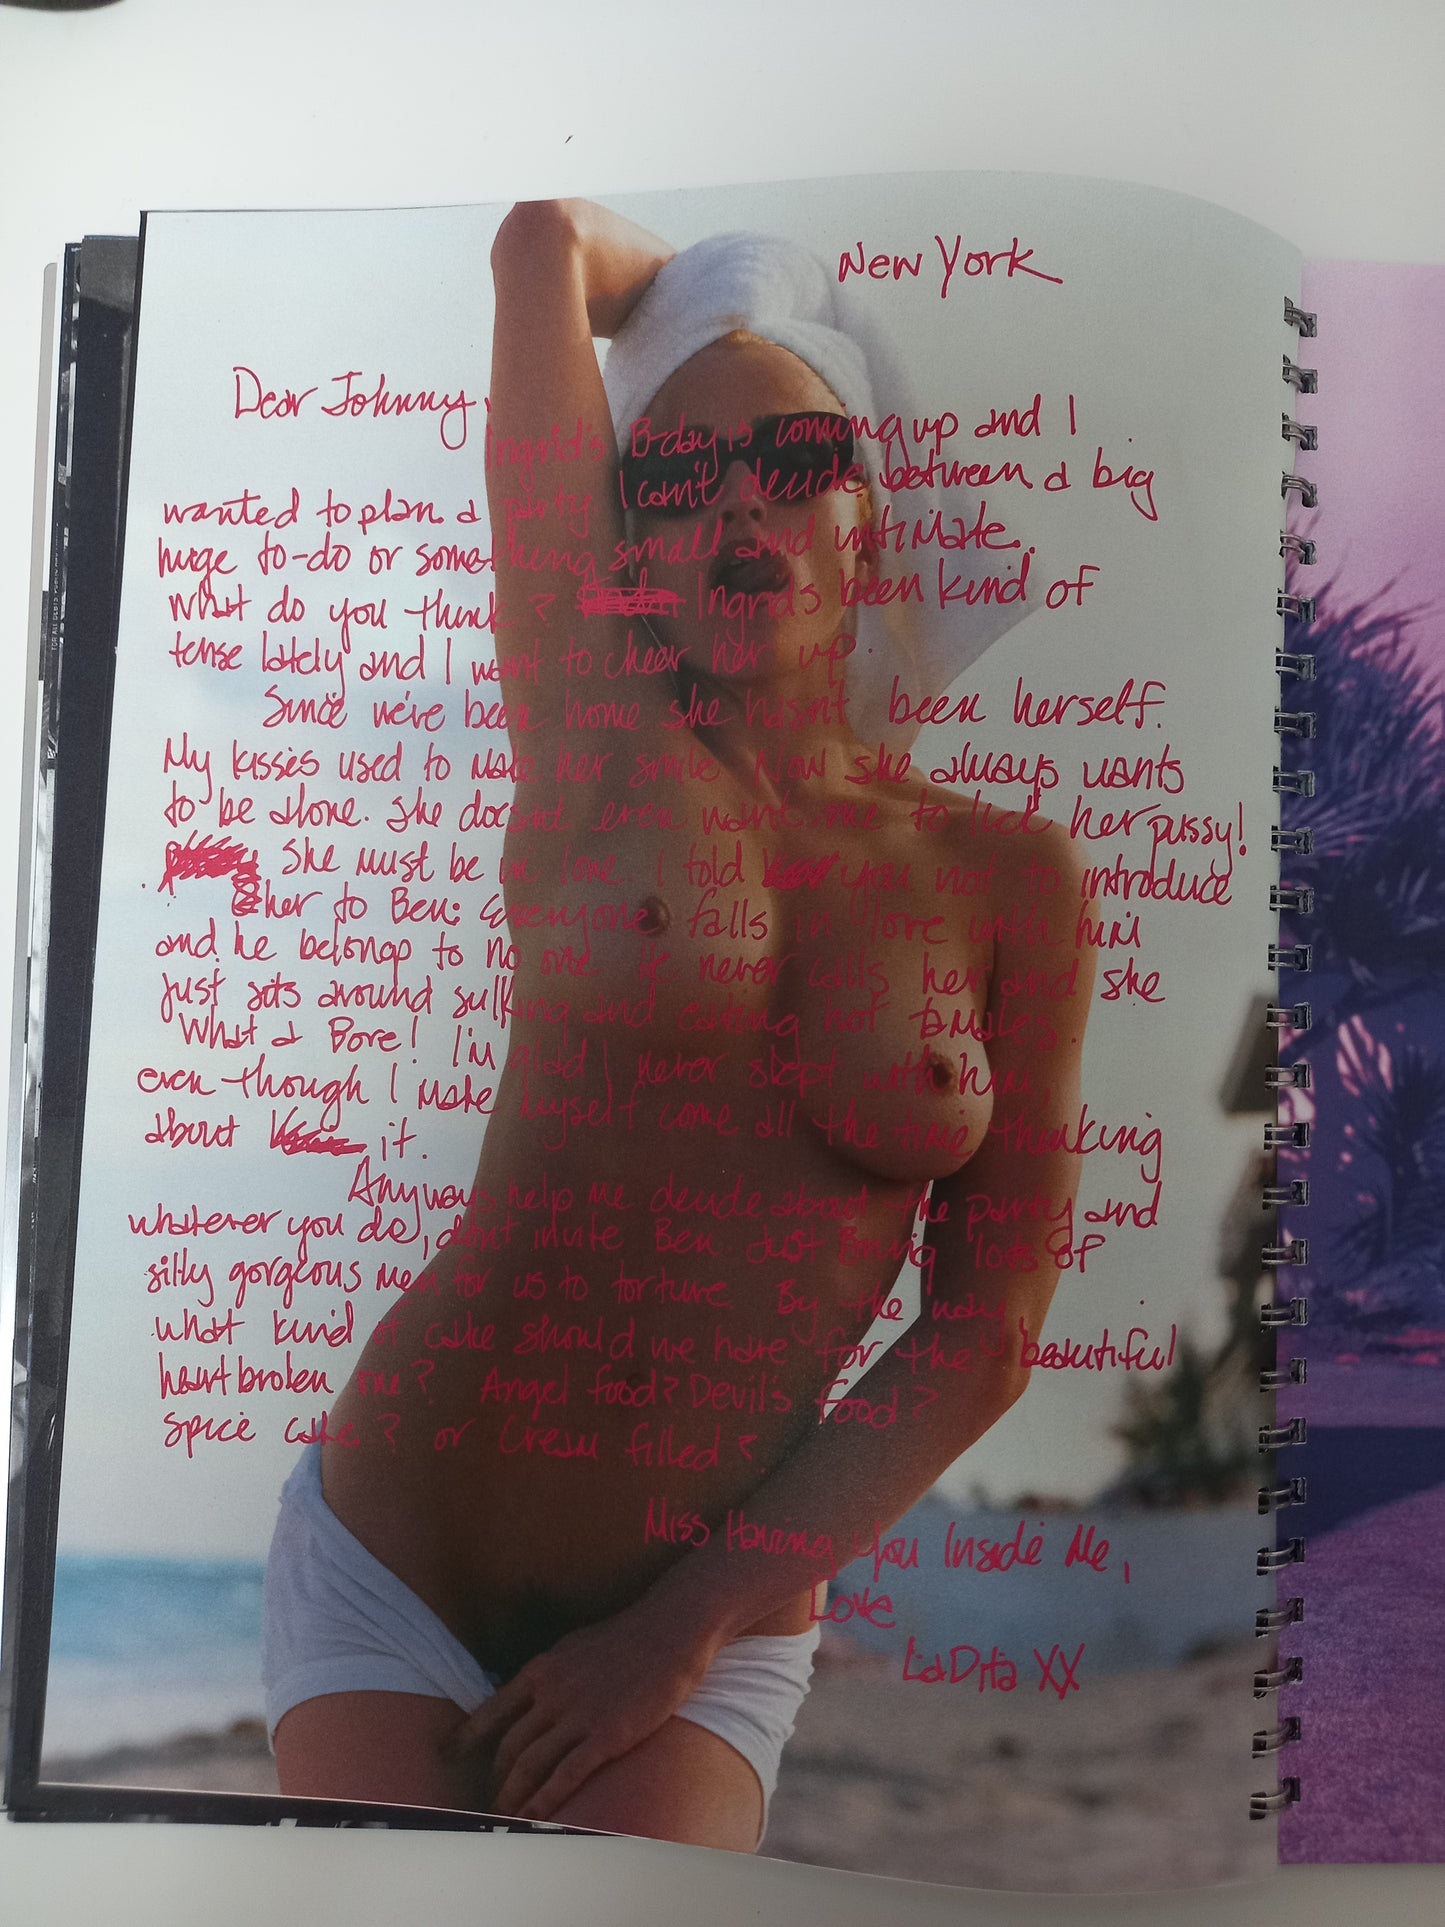 New York
Dear Johnny,
Ingrid's B-day is coming up and I
wanted to plan a party. I can't decide between a big
huge to-do or something small and intimate.
What do you think? Ingrid's been kind of
tense lately and I want to cheer her up.
Since we've been home she hasn't been herself.
My kisses used to make her smile. Now she always wants
to be alone. She doesn't even want me to lick her pussy!
She must be in love. I told you not to introduce
her to Ben. Everyone falls in love with him
and he belongs to no one. He never calls her and she
just sits around sulking and eating hot tamales.
What a Bore! I'm glad I never slept with him,
even though I make myself come all the time thinking
about it.
Anyways help me decide about the party and
whatever you do, don't invite Ben. Just Bring lots of
silly gorgeous men for us to torture. By the way,
what kind of cake should we have for the beautiful
heartbroken one? Angel food? Devil's food?
Spice cake? or Cream filled?
Miss Having You Inside Me,
Love
La Dita XX